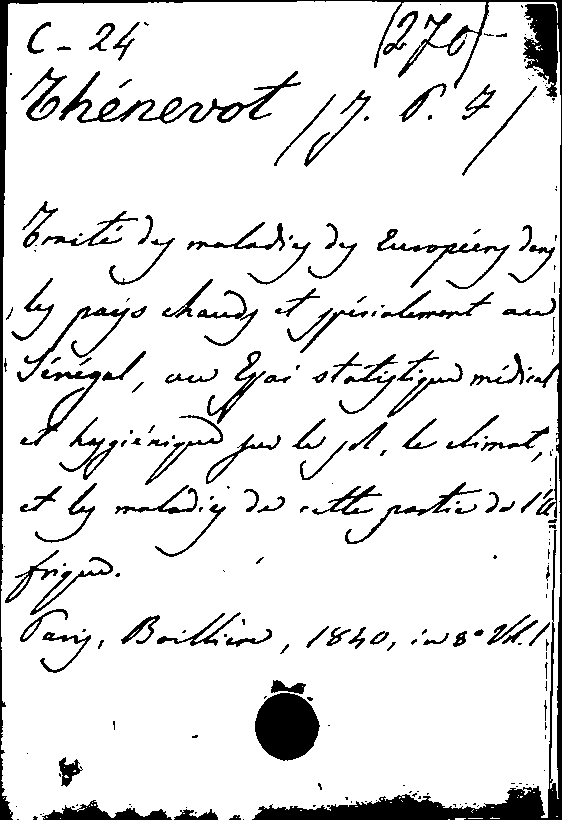 C - 24 (270)
Thénevot / J. P. F /
Traité des maladies des Européens dans
les pays chauds et spécialement au
Sénégal, ou Essai statistique médical
et hygiénique sur le sol, le climat,
et les maladies de cette partie de l'A
frique.
Paris, Baillière, 1840, in 8° Vol. 1